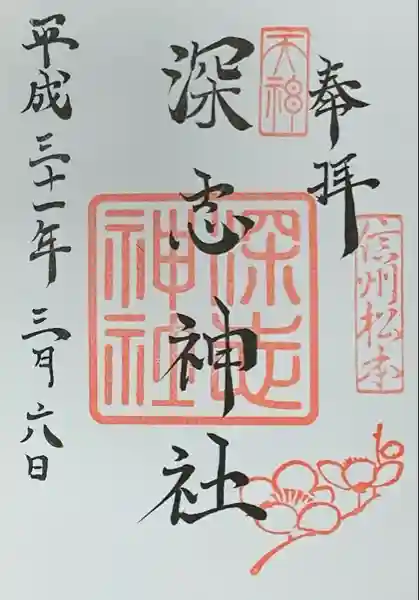 奉拝
信州松本
天神
深志神社
深志神社
平成三十一年 三月六日